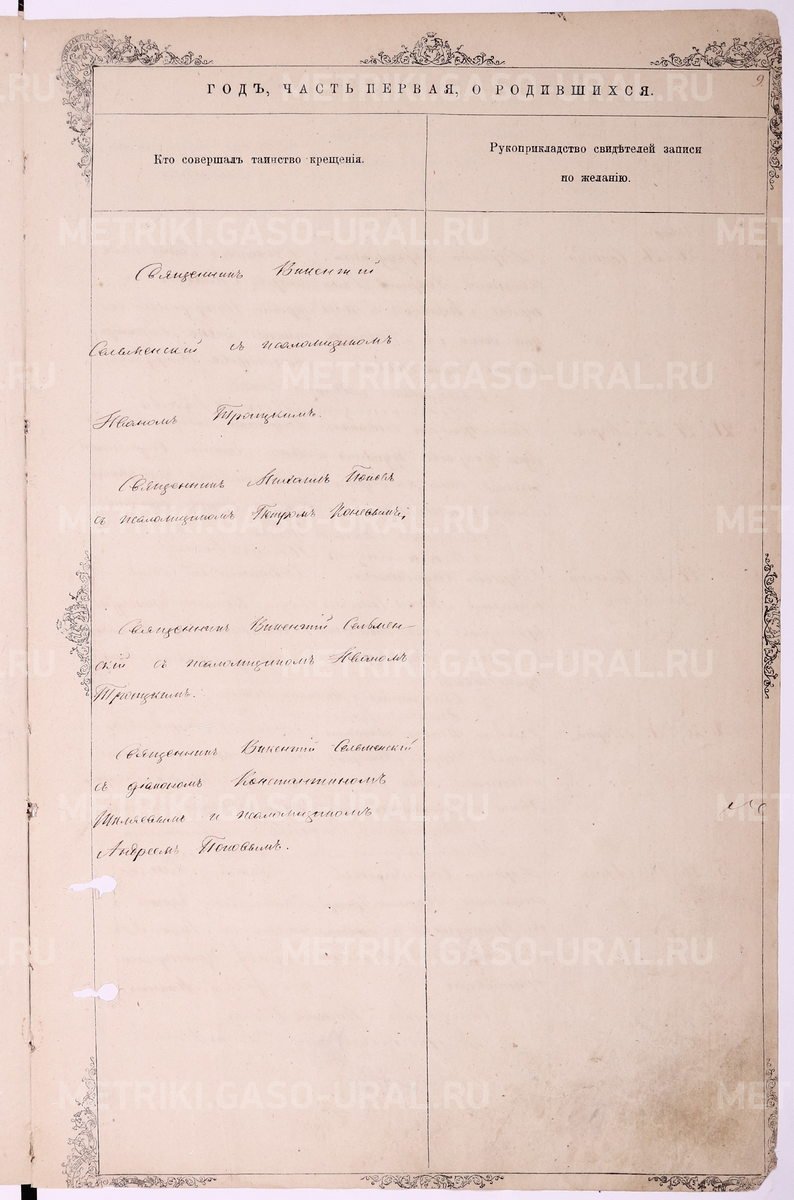 9
ГОДЪ, ЧАСТЬ ПЕРВАЯ, О РОДИВШИХСЯ.
Кто совершалъ таинство крещенія.
Рукоприкладство свидѣтелей записи
по желанію.
Священникъ Викентій
Сельменскій съ псаломщикомъ
Иваномъ Троицкимъ.
Священникъ Михаилъ Поповъ
съ псаломщикомъ Петромъ Коневымъ;
Священникъ Викентій Сельмен-
скій съ псаломщикомъ Иваномъ
Троицкимъ.
Священникъ Викентій Сельменскій
съ діакономъ Константиномъ
Шиляевымъ и псаломщикомъ
Андреемъ Поповымъ.
METRIKI.GASO-URAL.RU